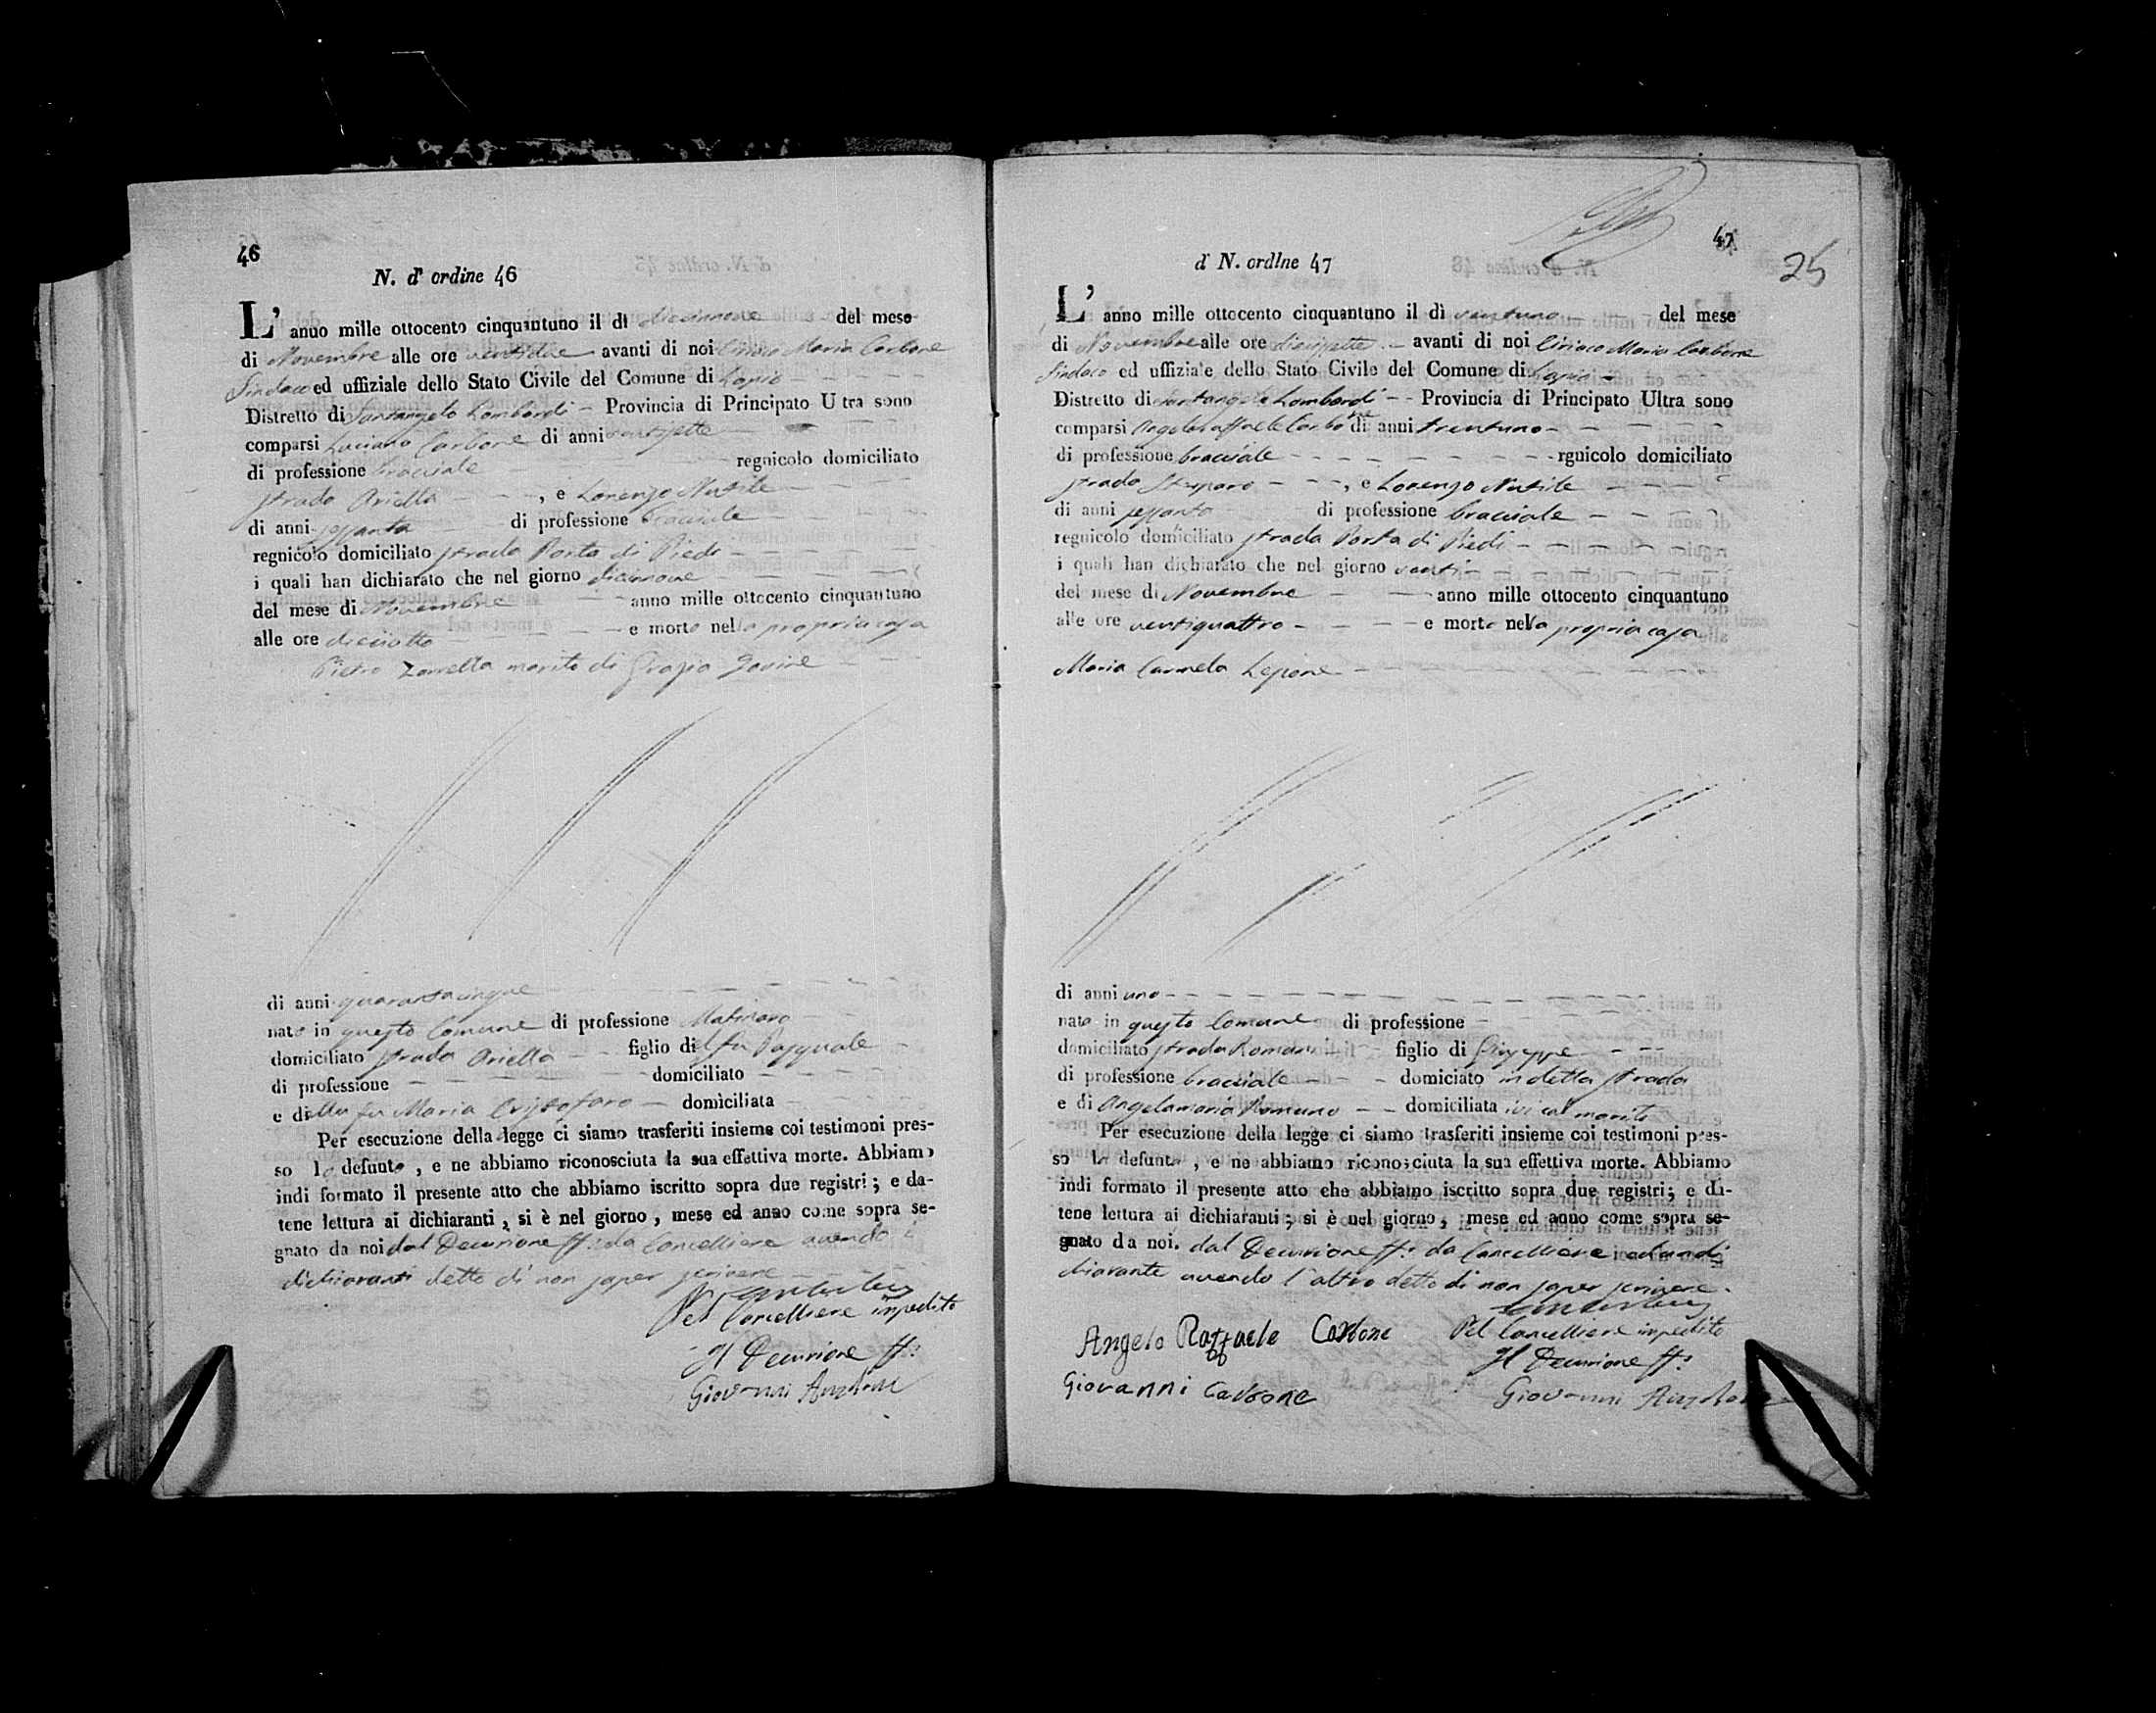 46
N. d' ordine 46
L' anno mille ottocento cinquantuno il dì diciannove del mese
di Novembre alle ore ventidue avanti di noi Ciriaco Maria Carbone
Sindaco ed uffiziale dello Stato Civile del Comune di Lapio
Distretto di Santangelo Lombardi Provincia di Principato Ultra sono
comparsi Luciano Carbone di anni ventisette
di professione bracciale regnicolo domiciliato
strada Ariella , e Lorenzo Nutile
di anni sessanta di professione bracciale
regnicolo domiciliato strada Porta di Piedi
i quali han dichiarato che nel giorno diciannove
del mese di Novembre anno mille ottocento cinquantuno
alle ore diciotto e morto nella propria casa
Pietro Zarrella marito di Grazia
di anni quarantacinque
nato in questo Comune di professione Molinaro
domiciliato strada Ariella figlio del fu Pasquale
di professione domiciliato
e della fu Maria Cristofaro domiciliata
Per esecuzione della legge ci siamo trasferiti insieme coi testimoni pres-
so lo defunto , e ne abbiamo riconosciuta la sua effettiva morte. Abbiamo
indi formato il presente atto che abbiamo iscritto sopra due registri ; e da-
tene lettura ai dichiaranti , si è nel giorno , mese ed anno come sopra se-
gnato da noi dal Decurione ff: da Cancelliere avendo i
dichiaranti detto di non saper scrivere
Pel Cancelliere impedito
Il Decurione ff:
Giovanni
47
25
d' N. ordlne 47
L' anno mille ottocento cinquantuno il dì ventuno del mese
di Novembre alle ore diciassette avanti di noi Ciriaco Maria Carbone
Sindaco ed uffiziale dello Stato Civile del Comune di Lapio
Distretto di Santangelo Lombardi Provincia di Principato Ultra sono
comparsi Angelo Raffaele Carbone di anni trentuno
di professione bracciale rgnicolo domiciliato
strada , e Lorenzo Nutile
di anni sessanta di professione bracciale
regnicolo domiciliato strada Porta di Piedi
i quali han dichiarato che nel giorno venti
del mese di Novembre anno mille ottocento cinquantuno
alle ore ventiquattro e morta nella propria casa
Maria Carmela Lepore
di anni uno
nata in questo Comune di professione
domiciliato strada Romani figlio di Giuseppe
di professione bracciale domiciato in detta strada
e di Angelamaria Romano domiciliata ivi col marito
Per esecuzione della legge ci siamo trasferiti insieme coi testimoni pres-
so la defunta , e ne abbiamo riconosciuta la sua effettiva morte. Abbiamo
indi formato il presente atto che abbiamo iscritto sopra due registri; e da-
tene lettura ai dichiaranti ; si è nel giorno , mese ed anno come sopra se-
gnato da noi. dal Decurione ff: da Cancelliere
chiarante avendo l'altro detto di non saper scrivere.
Angelo Raffaele Carbone Pel Cancelliere impedito
Il Decurione ff:
Giovanni Carbone Giovanni